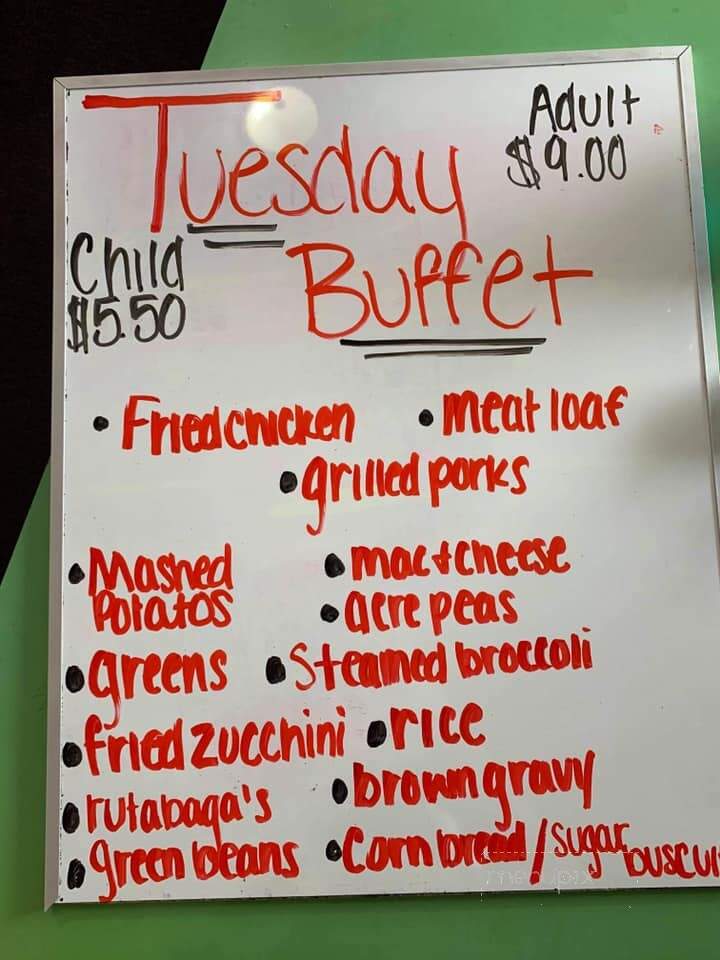 Tuesday
Adult
$9.00
Buffet
Child
$5.50
• Fried chicken • meat loaf
• grilled porks
• Mashed
Potatos
• mac + cheese
• acre peas
• greens • Steamed broccoli
• fried zucchini • rice
• rutabaga's • brown gravy
• green beans • Corn bread / sugar buscui
menupix